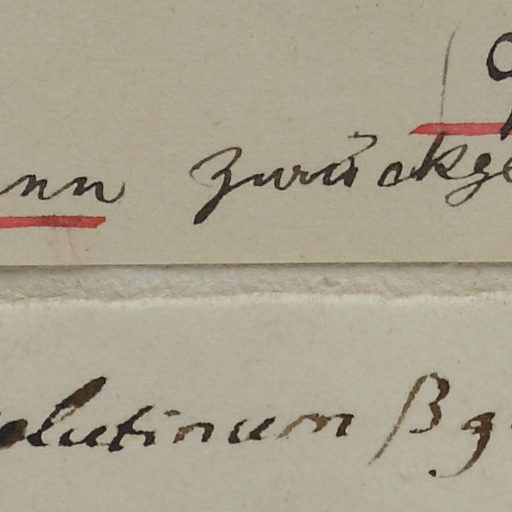 nn zurückge
lutinum β g